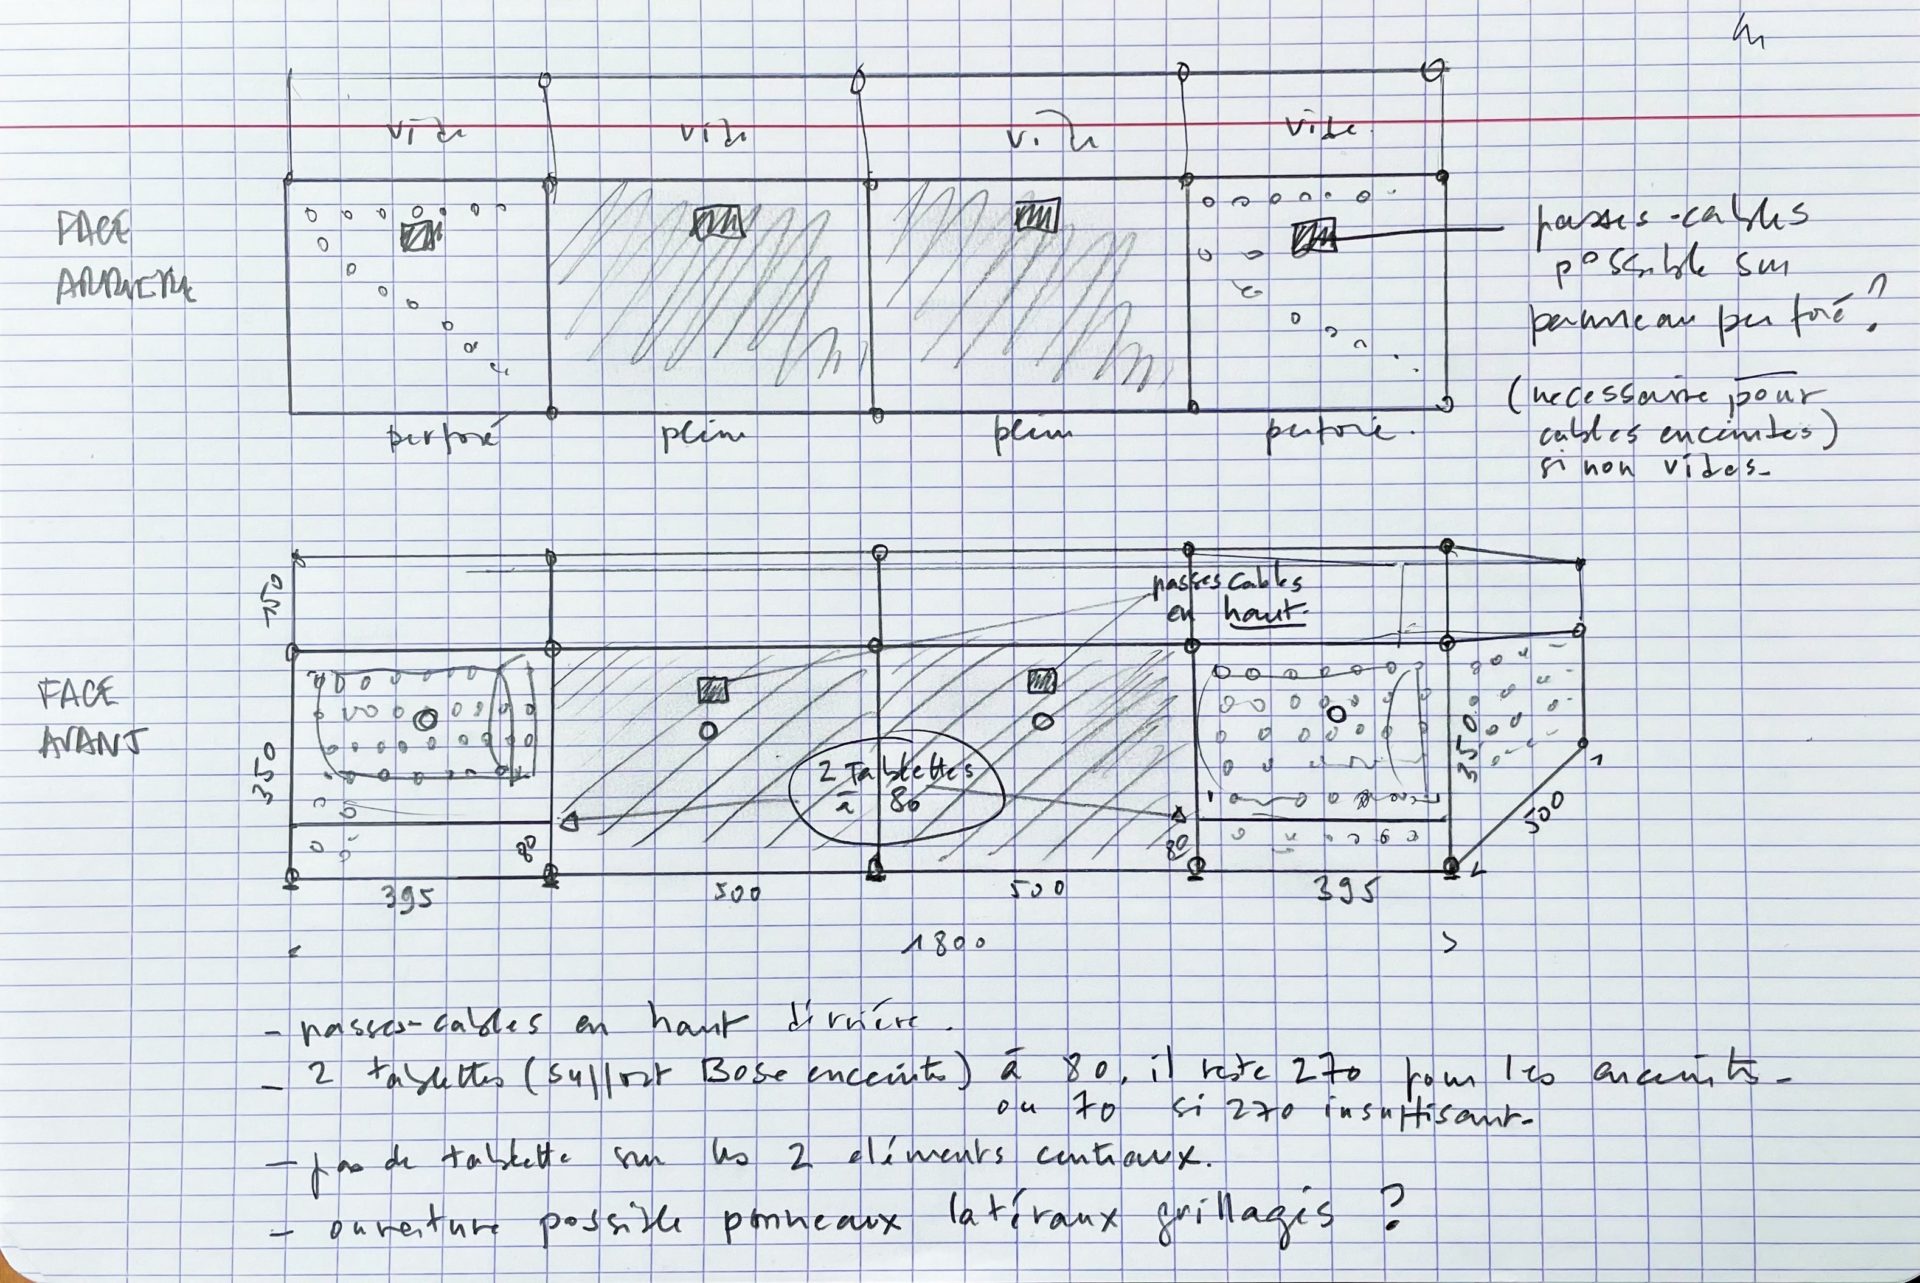 vide vide vide vide
FACE
ARRIERE
passes-cables
possible sur
panneau perforé ?
(necessaire pour
cables enceintes)
si non vides-
perforé plein plein perforé.
150
passes cables
en haut.
FACE
AVANT
350
350
2 Tablettes
à 80
80
80
500
395 500 500 395
1800
- passes-cables en haut dérrière.
- 2 tablettes (support Bose enceinte) à 80, il reste 270 pour les enceintes-
ou 70 si 270 insuffisant-
- pas de tablette sur les 2 éléments centraux.
- ouverture possible panneaux latéraux grillagés ?